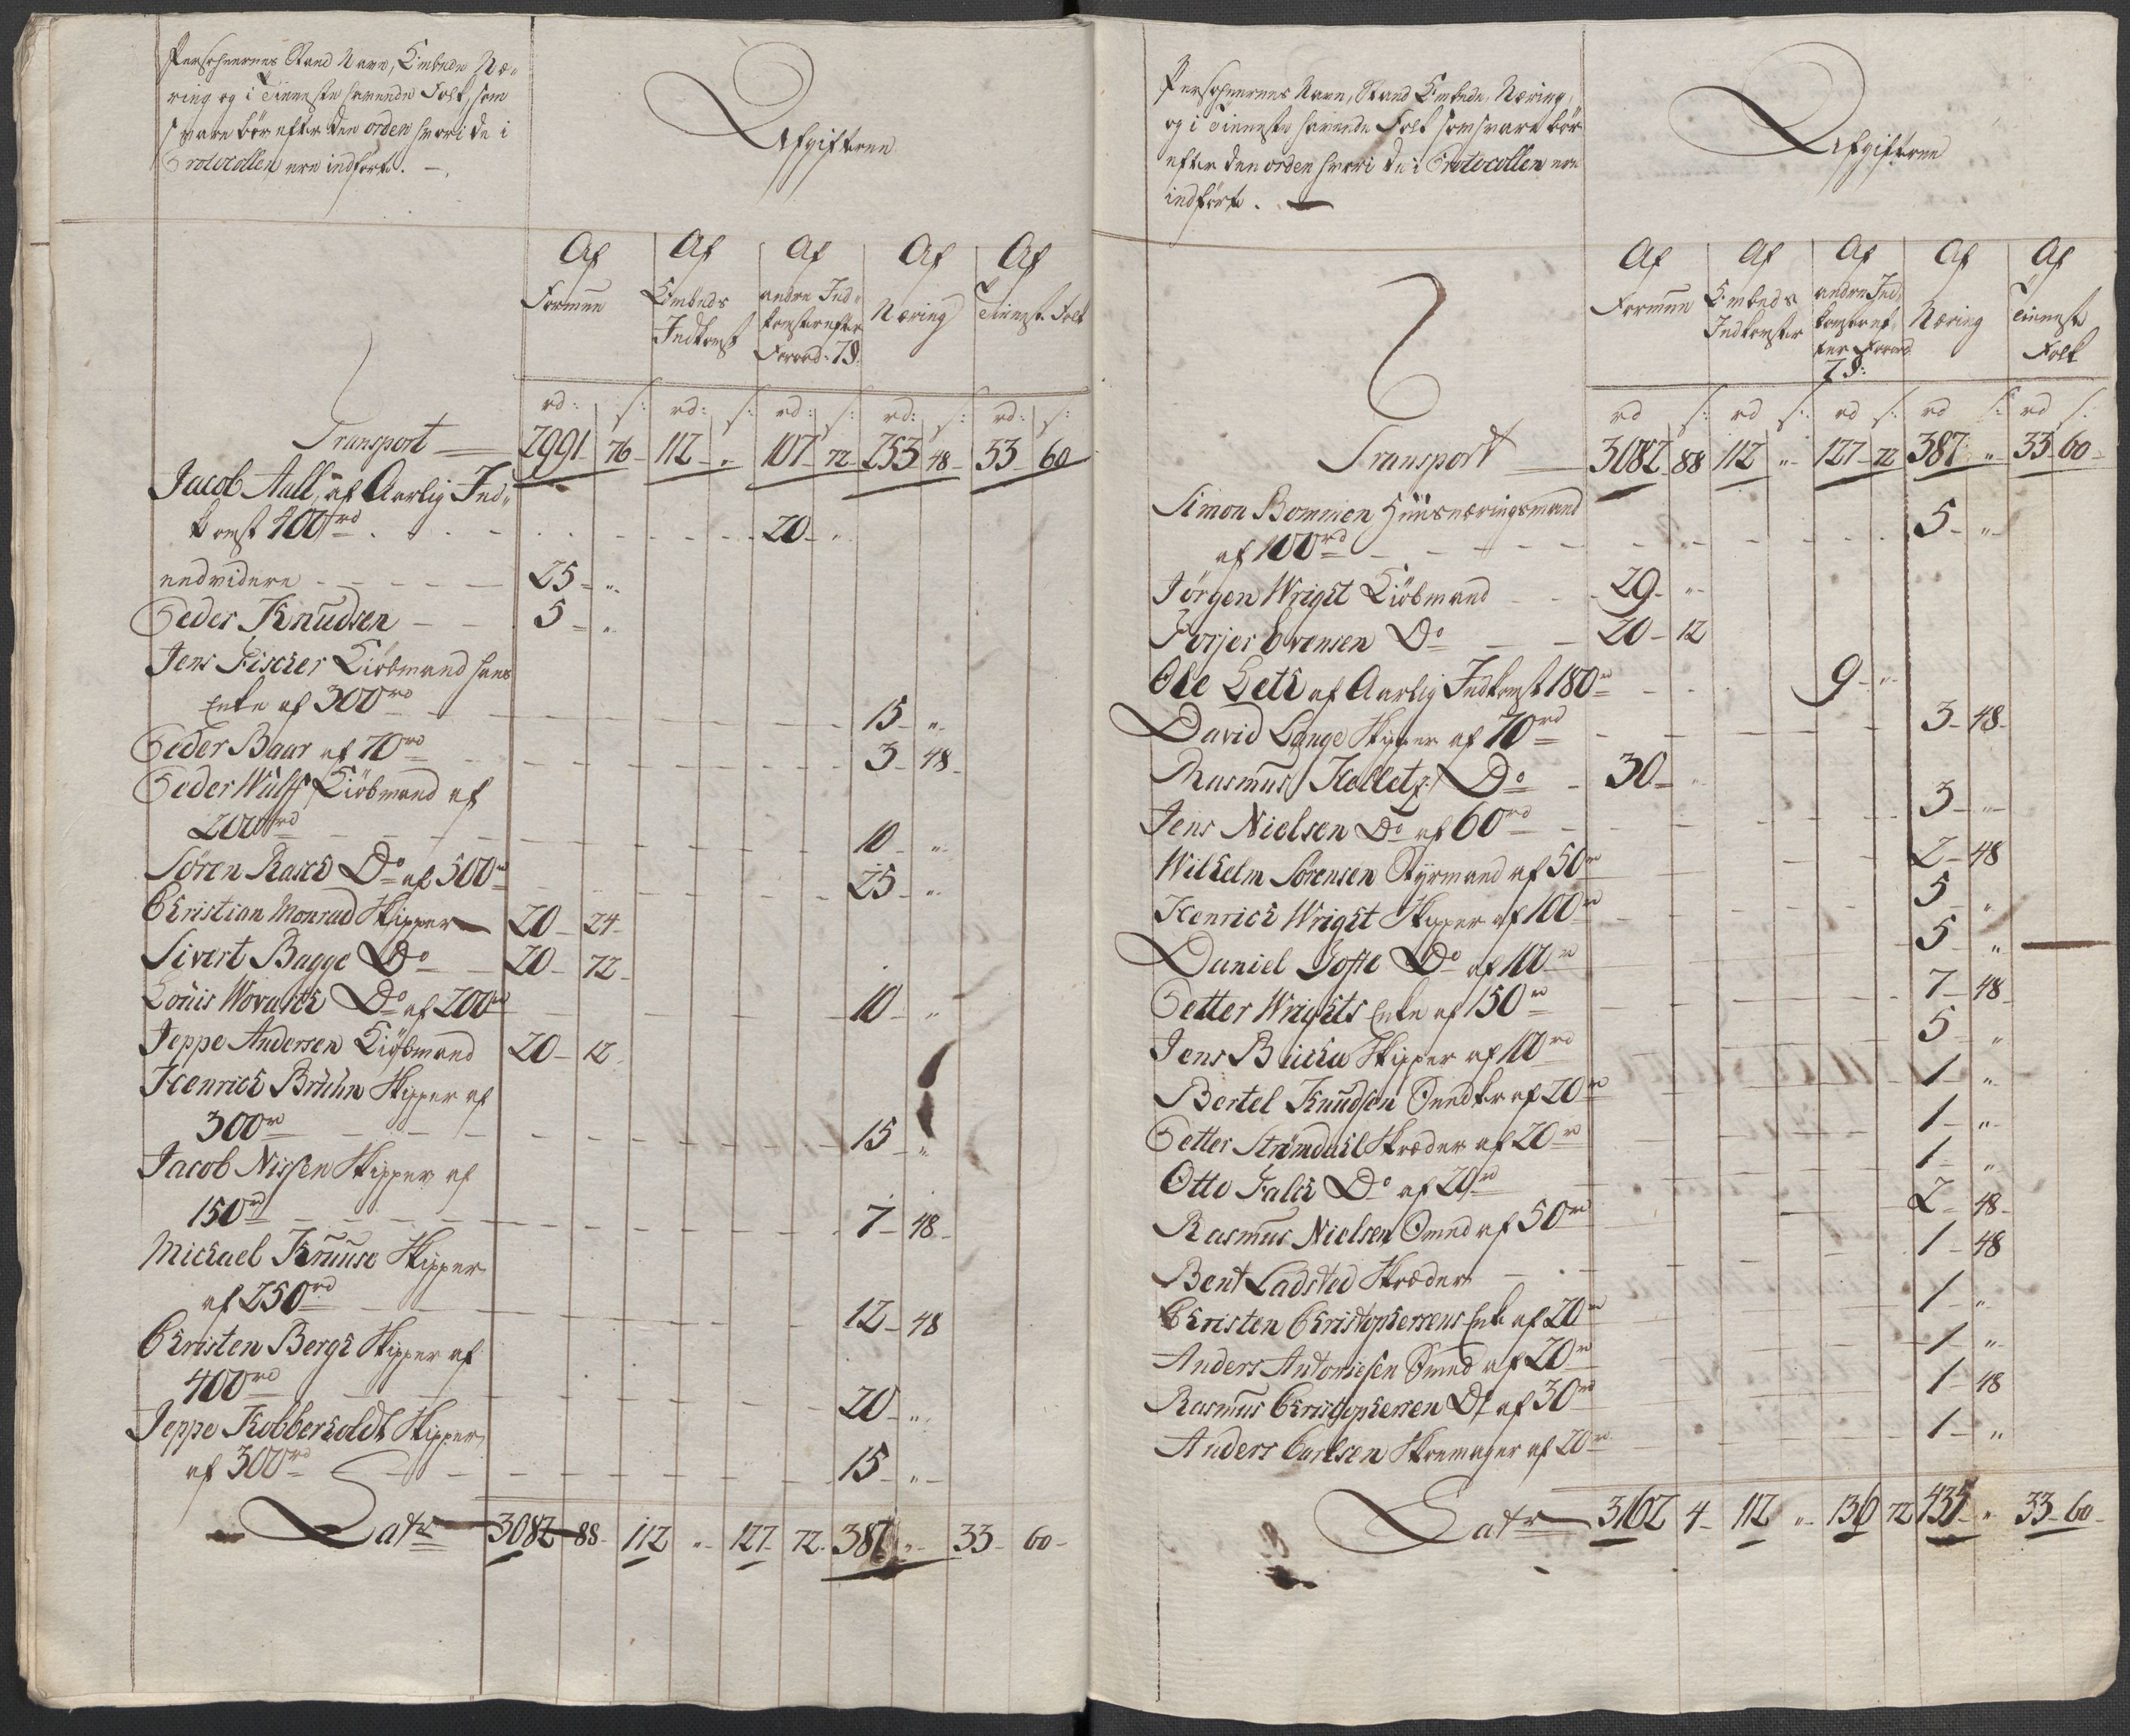 Persohnernes Stand Navn, Embede Næ-
ring og i Tieneste havende Folk, som
svare bør efter den orden hvori de i
Protocollen ere indførte. —
Afgifterne
Af Formue
Af Embeds Indkomst
Af andre Ind- komster efter Forord: 7 §.
Af Næring
Af Tieneste Folk
rd: s: rd: s: rd: s: rd: s: rd: s:
Transport 2991 76 112 " 107 72 253 48 33 60
Jacob Aall, af Aarlig Ind-
komst 400 rd 20 "
endvidere 25 "
Peder Knudsen 5 "
Jens Fischer Kiöbmand hans
Enke af 300 rd 15 "
Peder Baar af 70 rd 3 48
Peder Wulff Kiöbmand af
200 rd 10 "
Søren Rasch Do af 500 rd 25 "
Christian Monrad Skipper 20 24
Sivert Bagge Do 20 72
Louis Af 200 rd 10 "
Jeppe Andersen Kiöbmand 20 12
Henrich Bruhn Skipper af
300 rd 15 "
Jacob Nissen Skipper af
150 rd 7 48
Michael Kruuse Skipper
af 250 rd 12 48
Christen Bergh Skipper af
400 rd 20 "
Jeppe Kobberholdt Skipper
af 300 rd 15 "
Latr 3082 88 112 " 127 72 387 " 33 60
Persohnernes Navn, Stand Embede, Næring,
og i Tieneste havende Folk som svare bør
efter den orden hvori de i Protocollen ere
indførte.
Afgifterne
Af Formue
Af Embeds Indkomster
Af andre Ind- komster ef- ter Forord 7 §:
Af Næring
Af Tieneste Folk
rd s: rd s: rd s: rd s: rd s:
Transport 3082 88 112 " 127 72 387 " 33 60
Simon Bommen Huusnæringsmand
af 100 rd 5 "
Jørgen Wright Kiöbmand 29 "
Torjer Evensen Do 20 12
Ole Leth af Aarlig Indkomst 180 rd 9 "
David Lange Skipper af 70 rd 3 48
Rasmus Kelletz Do 30 "
Jens Nielsen Do af 60 rd 3 "
Wilhelm Sørensen Styrmand af 50 rd 2 48
Henrich Wright Skipper af 100 rd 5 "
Daniel Do af 100 rd 5 "
Petter Wrights Enke af 150 rd 7 48
Jens Skipper af 100 rd 5 "
Bertel Knudsen Snedker af 20 rd 1 "
Petter Strömdahl Skræder af 20 rd 1 "
Otto Falch Do af 20 rd 1 "
Rasmus Nielsen Smed af 50 rd 2 48
Bent Ladsted Skræder 1 48
Christen Christophersens Enke af 20 rd 1 "
Anders Antoniesen Smed af 20 rd 1 "
Rasmus Christophersen Do af 30 rd 1 48
Anders Carlsen Skoemager af 20 rd 1 "
Latr 3162 4 112 " 136 72 435 " 33 60